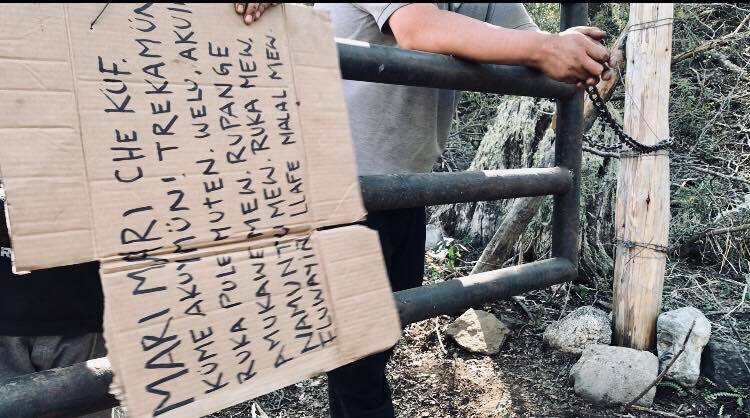 MARI MARI CHE KÜF.
KÜME AKUYMÜN! TREKAMÜN
RUKA PULE MUTEN. WELU, AKUI
AMUKAWE MEW. RUPANGE
NAMUNTU MEW. RUKA MEW.
LLAFE MALAL MEW.